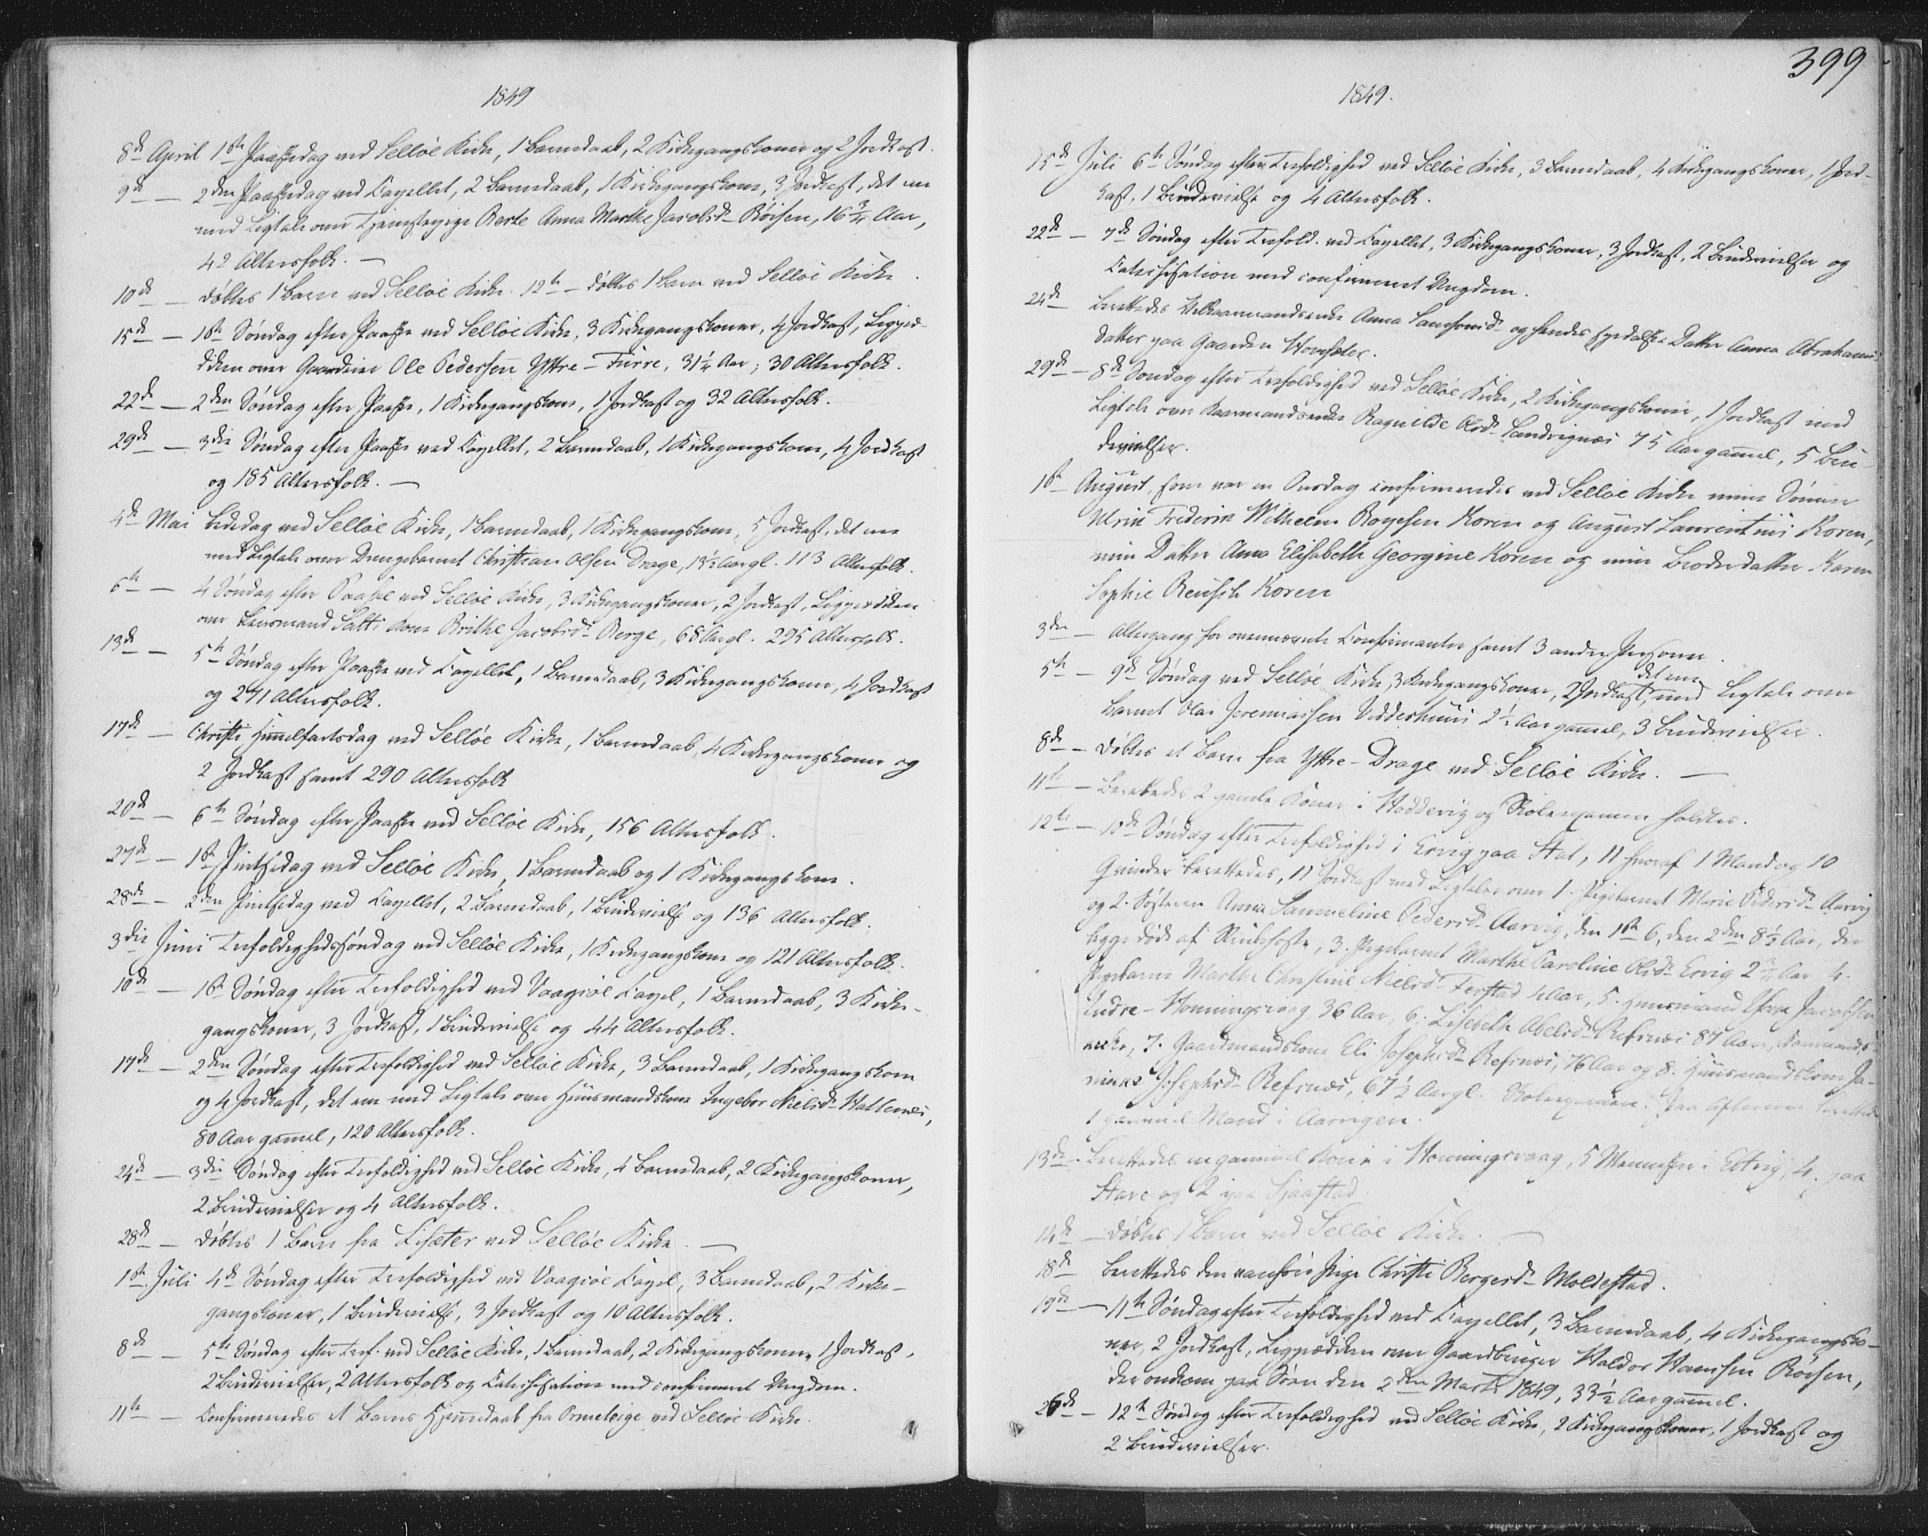 1849
8de April 1ste Paaskedag ved Selløe Kirke, 1 Barnedaab, 2 Kirkegangskoner og 2 Jordkast.
9de — 2den Paaskedag ved Capellet, 2 Barnedaab, 1 Kirkegangskone, 3 Jordkast, det ene
med Ligtale over Tjenestepige Berte Anna Marthe Jacobsd. Röisen, 16 3/4 Aar,
42 Altersfolk. —
10de — døbtes 1 Barn ved Selløe Kirke. 12te — døbtes 1 Barn ved Selløe Kirke.
15de — 1ste Søndag efter Paaske ved Selløe Kirke, 3 Kirkegangskoner, 4 Jordkast, Ligpræ-
diken over Gaardeier Ole Pedersen Yttre-Fürre, 31 1/4 Aar, 30 Altersfolk.
22de — 2den Søndag efter Paaske, 1 Kirkegangskone, 1 Jordkast og 32 Altersfolk.
29de — 3die Søndag efter Paaske ved Capellet, 2 Barnedaab, 1 Kirkegangskone, 4 Jordkast
og 185 Altersfolk. —
4de Mai Bededag ved Selløe Kirke, 1 Barnedaab, 1 Kirkegangskone, 5 Jordkast, det ene
med Ligtale over Drengebarnet Christian Olsen Drage, 1 1/2 Aargl. 113 Altersfolk.
6te — 4 Søndag efter Paaske ved Selløe Kirke, 3 Kirkegangskoner, 2 Jordkast, Ligprædiken
over Lensmand Sattis Kone Brithe Jacobsd. Berge, 68 Aargl. 295 Altersfolk.
13de — 5te Søndag efter Paaske ved Capellet, 1 Barnedaab, 3 Kirkegangskoner, 4 Jordkast
og 271 Altersfolk.
17de — Christi Himmelfartsdag ved Selløe Kirke, 1 Barnedaab, 4 Kirkegangskoner og
2 Jordkast samt 290 Altersfolk
20de — 6te Søndag efter Paaske ved Selløe Kirke, 156 Altersfolk.
27de — 1ste Pintsedag ved Selløe Kirke, 1 Barnedaab og 1 Kirkegangskone.
28de — 2den Pintsedag ved Capellet, 2 Barnedaab, 1 Brudevielse og 136 Altersfolk.
3die Juni Trefoldighedssøndag ved Selløe Kirke, 1 Kirkegangskone og 121 Altersfolk.
10de — 1ste Søndag efter Trefoldighed ved Vaagsøe Capel, 1 Barnedaab, 3 Kirke-
gangskoner, 3 Jordkast, 1 Brudevielse og 44 Altersfolk.
17de — 2den Søndag efter Trefoldighed ved Selløe Kirke, 3 Barnedaab, 1 Kirkegangskone
og 4 Jordkast, det ene med Ligtale over Huusmandskone Ingebor Nielsd. Hatlenes,
80 Aar gammel, 120 Altersfolk.
24de — 3die Søndag efter Trefoldighed ved Selløe Kirke, 4 Barnedaab, 2 Kirkegangskoner,
2 Brudevielser og 4 Altersfolk.
28de — døbtes 1 Barn fra Lisæter ved Selløe Kirke. —
1ste Juli 4de Søndag efter Trefoldighed ved Vaagsøe Capel, 3 Barnedaab, 2 Kirke-
gangskoner, 1 Brudevielse, 3 Jordkast og 10 Altersfolk.
8de — 5te Søndag efter Tref. ved Selløe Kirke, 1 Barnedaab, 2 Kirkegangskoner, 1 Jordkast,
2 Brudevielser, 2 Altersfolk og Catechisation med confirmeret Ungdom.
11te — Confirmeredes et Barns Hjemmedaab fra Ormeløige ved Selløe Kirke.
399
1849.
15de Juli 6te Søndag efter Trefoldighed ved Selløe Kirke, 3 Barnedaab, 4 Kirkegangskoner, 1 Jord-
kast, 1 Brudevielse og 4 Altersfolk.
22de — 7de Søndag efter Trefold. ved Capellet, 3 Kirkegangskoner, 3 Jordkast, 2 Brudevielser og
Catechisation med confirmeret Ungdom.
24de berettedes Anna og hendes Datter Anna Abrahams-
datter paa Gaarden
29de — 8de Søndag efter Trefoldighed ved Selløe Kirke, 2 Kirkegangskoner, 1 Jordkast med
Ligtale over Ragnilde Olsd. Sandvignæs 75 Aar gammel, 5 Bru-
devielser.
1ste August, som var en Onsdag confirmeredes ved Selløe Kirke mine Sønner
Ulrik Frederik Wilhelm Boyesen Koren og August Laurentius Koren,
min Datter Anna Elisabeth Georgine Koren og min Broderdatter Karen
Sophie Reusch Koren
3die — Altergang for ovennævnte Confirmanter samt 3 andre Personer.
5te — 9de Søndag ved Selløe Kirke, 3 Kirkegangskoner, 2 Jordkast, det ene med Ligtale over
Barnet Olai Jeremiassen Vedderhuus 2 1/2 Aar gammel, 3 Brudevielser.
8de — døbtes et Barn fra Yttre-Drage ved Selløe Kirke. —
11te — Berettedes 2 gamle Koner i Hoddevig og Skoleexamen holdtes.
12te — 10de Søndag efter Trefoldighed i Ervig paa Stat, 11 hvoraf 1 Mand og 10
Qvinder berettedes, 11 Jordkast med Ligtaler over 1. Pigebarnet Marie Pedersd. Aarvig
og 2. Søsteren Anne Sameline Pedersd. Aarvig, den 1ste 6, den 2den 8 1/2 Aar,
begge døde af 3. Pigebarnet Marthe Caroline Olsd. Ervig 2 Aar 4.
Pigebarn Marthe Christine Nielsd. Ferstad 4 Aar, 5. Huusmand Jacobsen
Indre-Honningsvaag 36 Aar, 6. Lisebeth Abelsd. Refsnæs 87 Aar,
Enke, 7. Gaardmandskone Eli Josephsd. Refsnæs, 76 Aar og 8. Huusmandskone
Josephsd. Refsnæs, 67 1/2 Aargl. Skoleexamen. Paa Aftenen berettedes
1 gammel Mand i Aarvigen.
13de Berettedes en gammel Kone i Honningsvaag, 5 Mennesker i Ervig, 4 paa
Stave og 2 paa
14de — døbtes 1 Barn ved Selløe Kirke. —
18de berettedes den vanføre Pige Christi Bergersd. Moldestad.
19de — 11te Søndag efter Trefoldighed ved Capellet, 3 Barnedaab, 4 Kirkegangsko-
ner, 2 Jordkast, Ligprædiken over Gaardbruger Haldor Hansen Röisen,
der omkom paa Søen den 2den Marts 1849, 33 1/2 Aar gammel.
26de — 12te Søndag efter Trefoldighed ved Selløe Kirke, 2 Kirkegangskoner, 1 Jordkast og
2 Brudevielser.